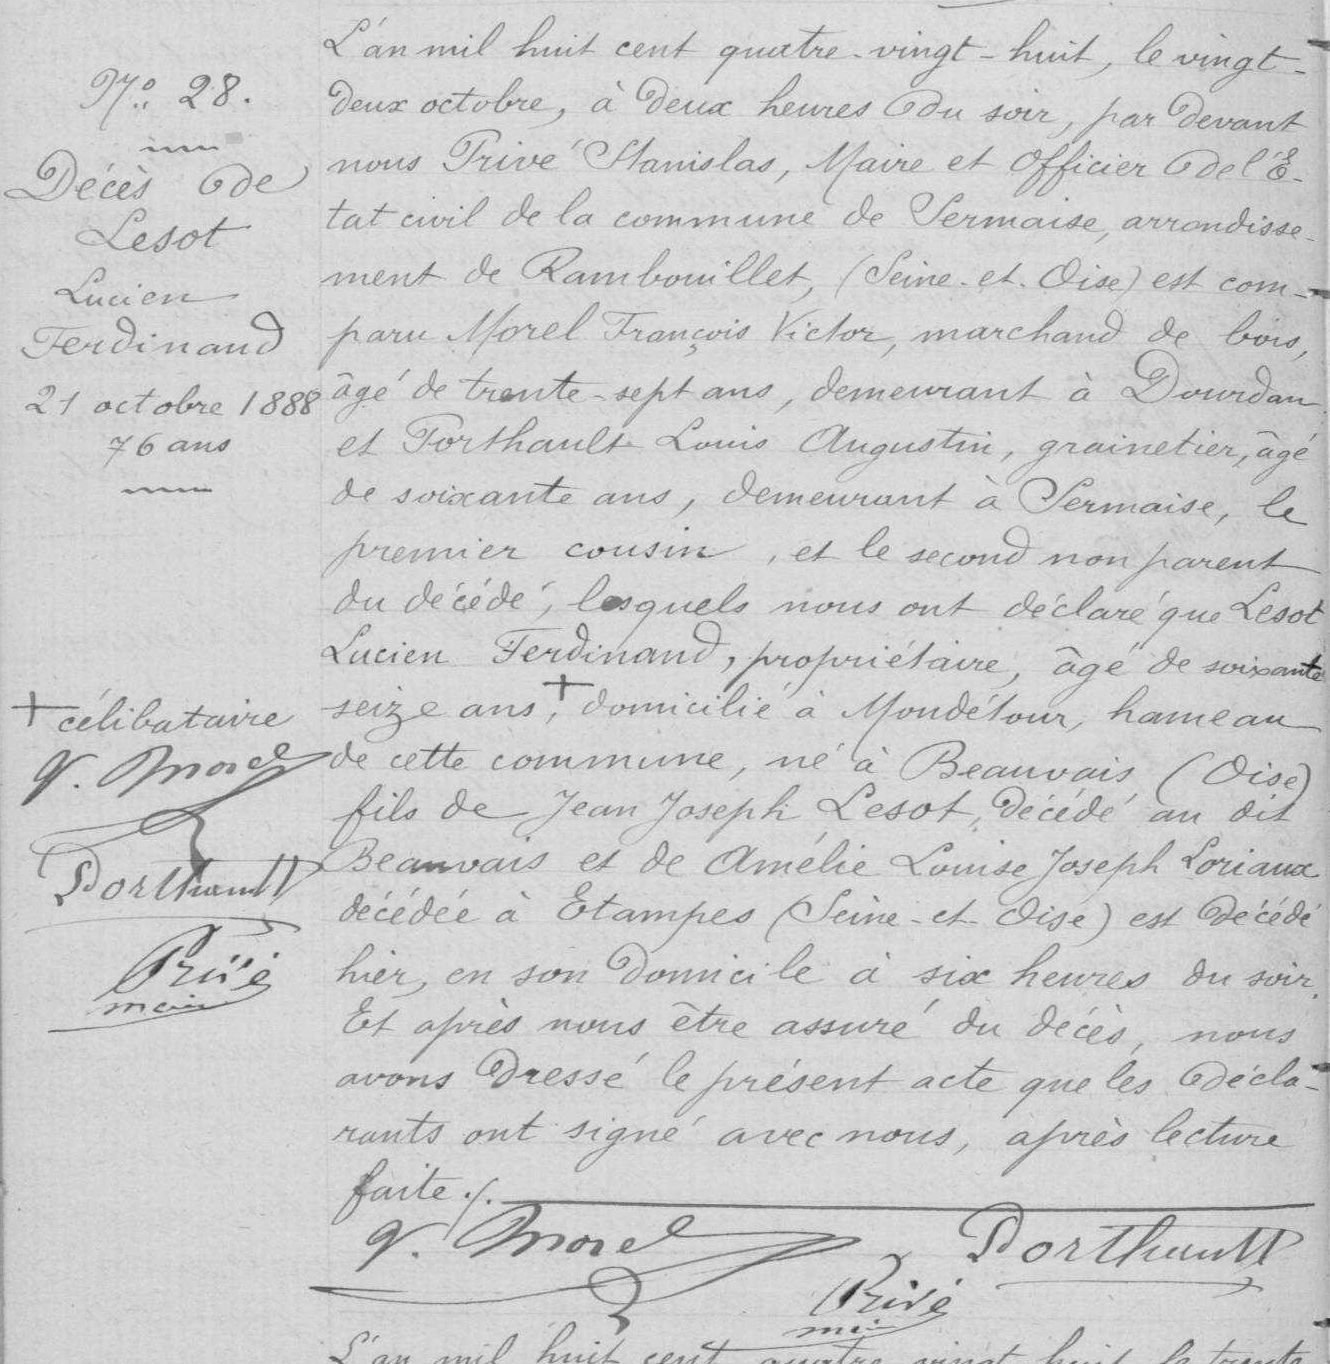 N.o 28.
Décès de
Lesot
Lucien
Ferdinand
21 octobre 1888
76 ans
+ célibataire
V. Morel
Porthault
Privé
maire
L'an mil huit cent quatre-vingt-huit, le vingt-
deux octobre, à deux heures du soir, par devant
nous Privé Stanislas, Maire et Officier de l'É-
tat civil de la commune de Sermaise, arrondisse-
ment de Rambouillet, (Seine-et-Oise) est com-
paru Morel François Victor, marchand de bois,
âgé de trente-sept ans, demeurant à Dourdan
et Porthault Louis Augustin, grainetier, âgé
de soixante ans, demeurant à Sermaise, le
premier cousin, et le second non parent
du décédé, lesquels nous ont déclaré que Lesot
Lucien Ferdinand, propriétaire, âgé de soixante
seize ans, + domicilié à Mondétour, hameau
de cette commune, né à Beauvais (Oise)
fils de Jean Joseph Lesot, décédé au dit
Beauvais et de Amélie Louise Joseph Loriaux
décédée à Etampes (Seine-et-Oise) est décédé
hier, en son domicile à six heures du soir.
Et après nous être assuré du décès, nous
avons dressé le présent acte que les décla-
rants ont signé avec nous, après lecture
faite ./.
V. Morel Porthault
Privé
maire
L'an mil huit cent quatre vingt huit le trente